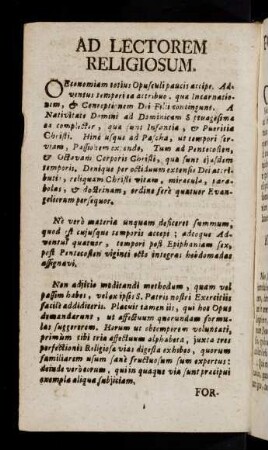 AD LECTOREM
RELIGIOSUM.
OEconomiam totius Opusculi paucis accipe. Ad-
ventus tempori ea attribuo, quæ Incarnatio-
nem, & Conceptionem Dei Filii contingunt. A
Nativitate Domini ad Dominicam Septuagesima
ea complector, quæ sunt Infantiæ, & Pueritiæ
Christi. Hinc usque ad Pascha, ut tempori ser-
viam, Passionem expendo. Tum ad Pentecosten,
& Octavam Corporis Christi, quæ sunt ejusdem
temporis. Denique per octiduum extensis Dei attri-
butis, reliquam Christi vitam, miracula, para-
bolas, & doctrinam, ordine ferè quatuor Evan-
geliorum persequor.
Ne verò materia unquam deficeret summum,
quod est cujusque temporis accepe; adeoque Ad-
ventui quatuor, tempori post Epiphaniam sex,
post Pentecosten viginti octo integras hebdomadas
assignavi.
Non adjicio meditandi methodum, quam vel
passim habes, vel ex ipsis S. Patris nostri Exercitiis
facilè addidiceris. Placuit tamen iis, qui hoc Opus
demandarunt, ut affectuum quorundam formu-
las suggererem. Horum ut obtemperem voluntati,
primùm tibi tria affectuum alphabeta, juxta tres
perfectionis Religiosæ vias digesta exhibeo, quorum
familiarem usum sanè fructuosum sum expertus:
deinde verò eorum, qui in quaque via sunt præcipui
exempla aliqua subjiciam.
FOR-